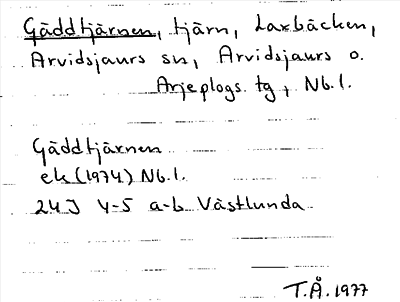 Gäddtjärnen, tjärn, Laxbäcken,
Arvidsjaurs sn, Arvidsjaurs o.
Arjeplogs tg, Nb.l.
Gäddtjärnen
ek (1974) Nb.l.
24J 4-5 a-b Västlunda
T.Å. 1977